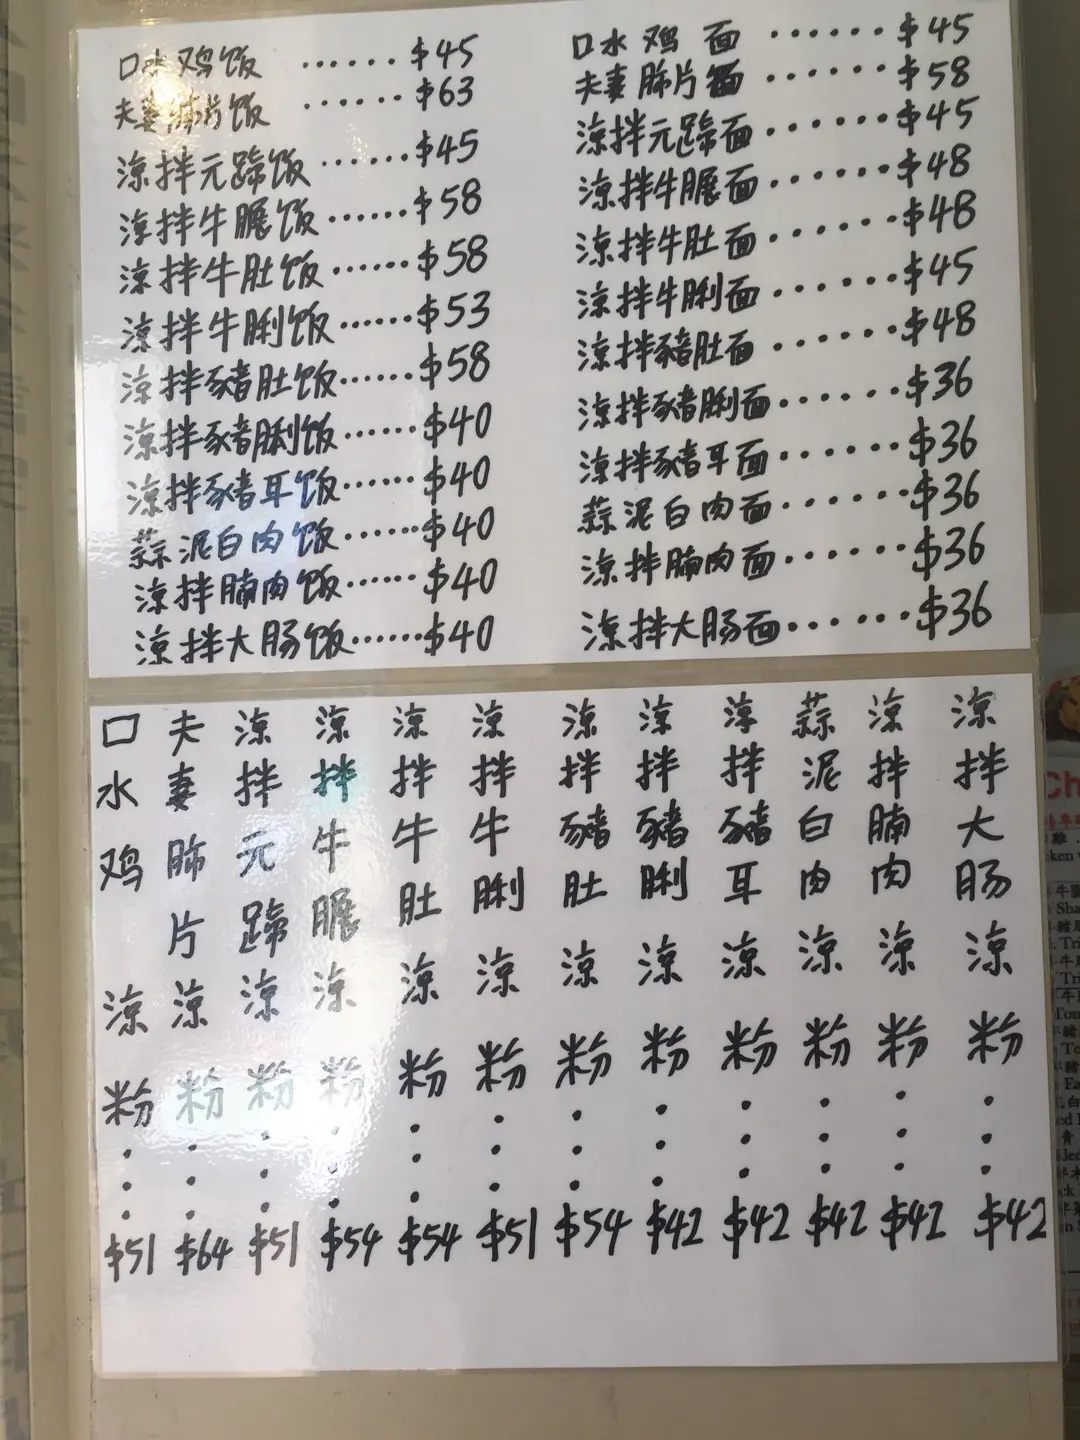 口水鸡饭 ······$45
夫妻肺片饭 ······$63
涼拌元蹄饭······$45
涼拌牛𦟌饭······$58
涼拌牛肚饭······$58
涼拌牛脷饭······$53
涼拌豬肚饭······$58
涼拌豬脷饭······$40
涼拌豬耳饭······$40
蒜泥白肉饭······$40
涼拌腩肉饭······$40
涼拌大肠饭······$40
口水鸡面 ······$45
夫妻肺片面 ······$58
涼拌元蹄面······$45
涼拌牛𦟌面······$48
涼拌牛肚面······$48
涼拌牛脷面······$45
涼拌豬肚面······$48
涼拌豬脷面······$36
涼拌豬耳面······$36
蒜泥白肉面······$36
涼拌腩肉面······$36
涼拌大肠面······$36
口水鸡涼粉···$51
夫妻肺片涼粉···$64
涼拌元蹄涼粉···$51
涼拌牛𦟌涼粉···$54
涼拌牛肚涼粉···$54
涼拌牛脷涼粉···$51
涼拌豬肚涼粉···$54
涼拌豬脷涼粉···$42
涼拌豬耳涼粉···$42
蒜泥白肉涼粉···$42
涼拌腩肉涼粉···$42
涼拌大肠涼粉···$42